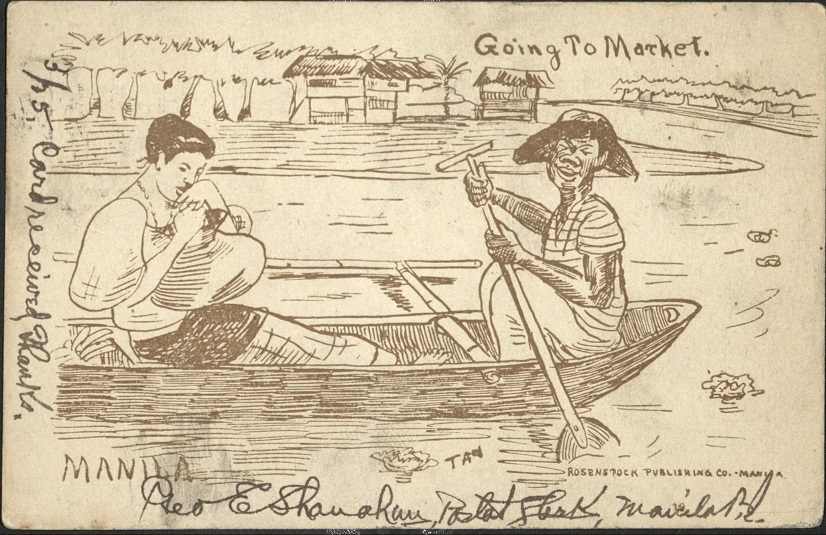 Going To Market.
3/25. Card received thanks.
MANILA
TAN
ROSENSTOCK PUBLISHING CO.-MANILA
Geo E Shanahan, Postal Clerk, Manila P.I.